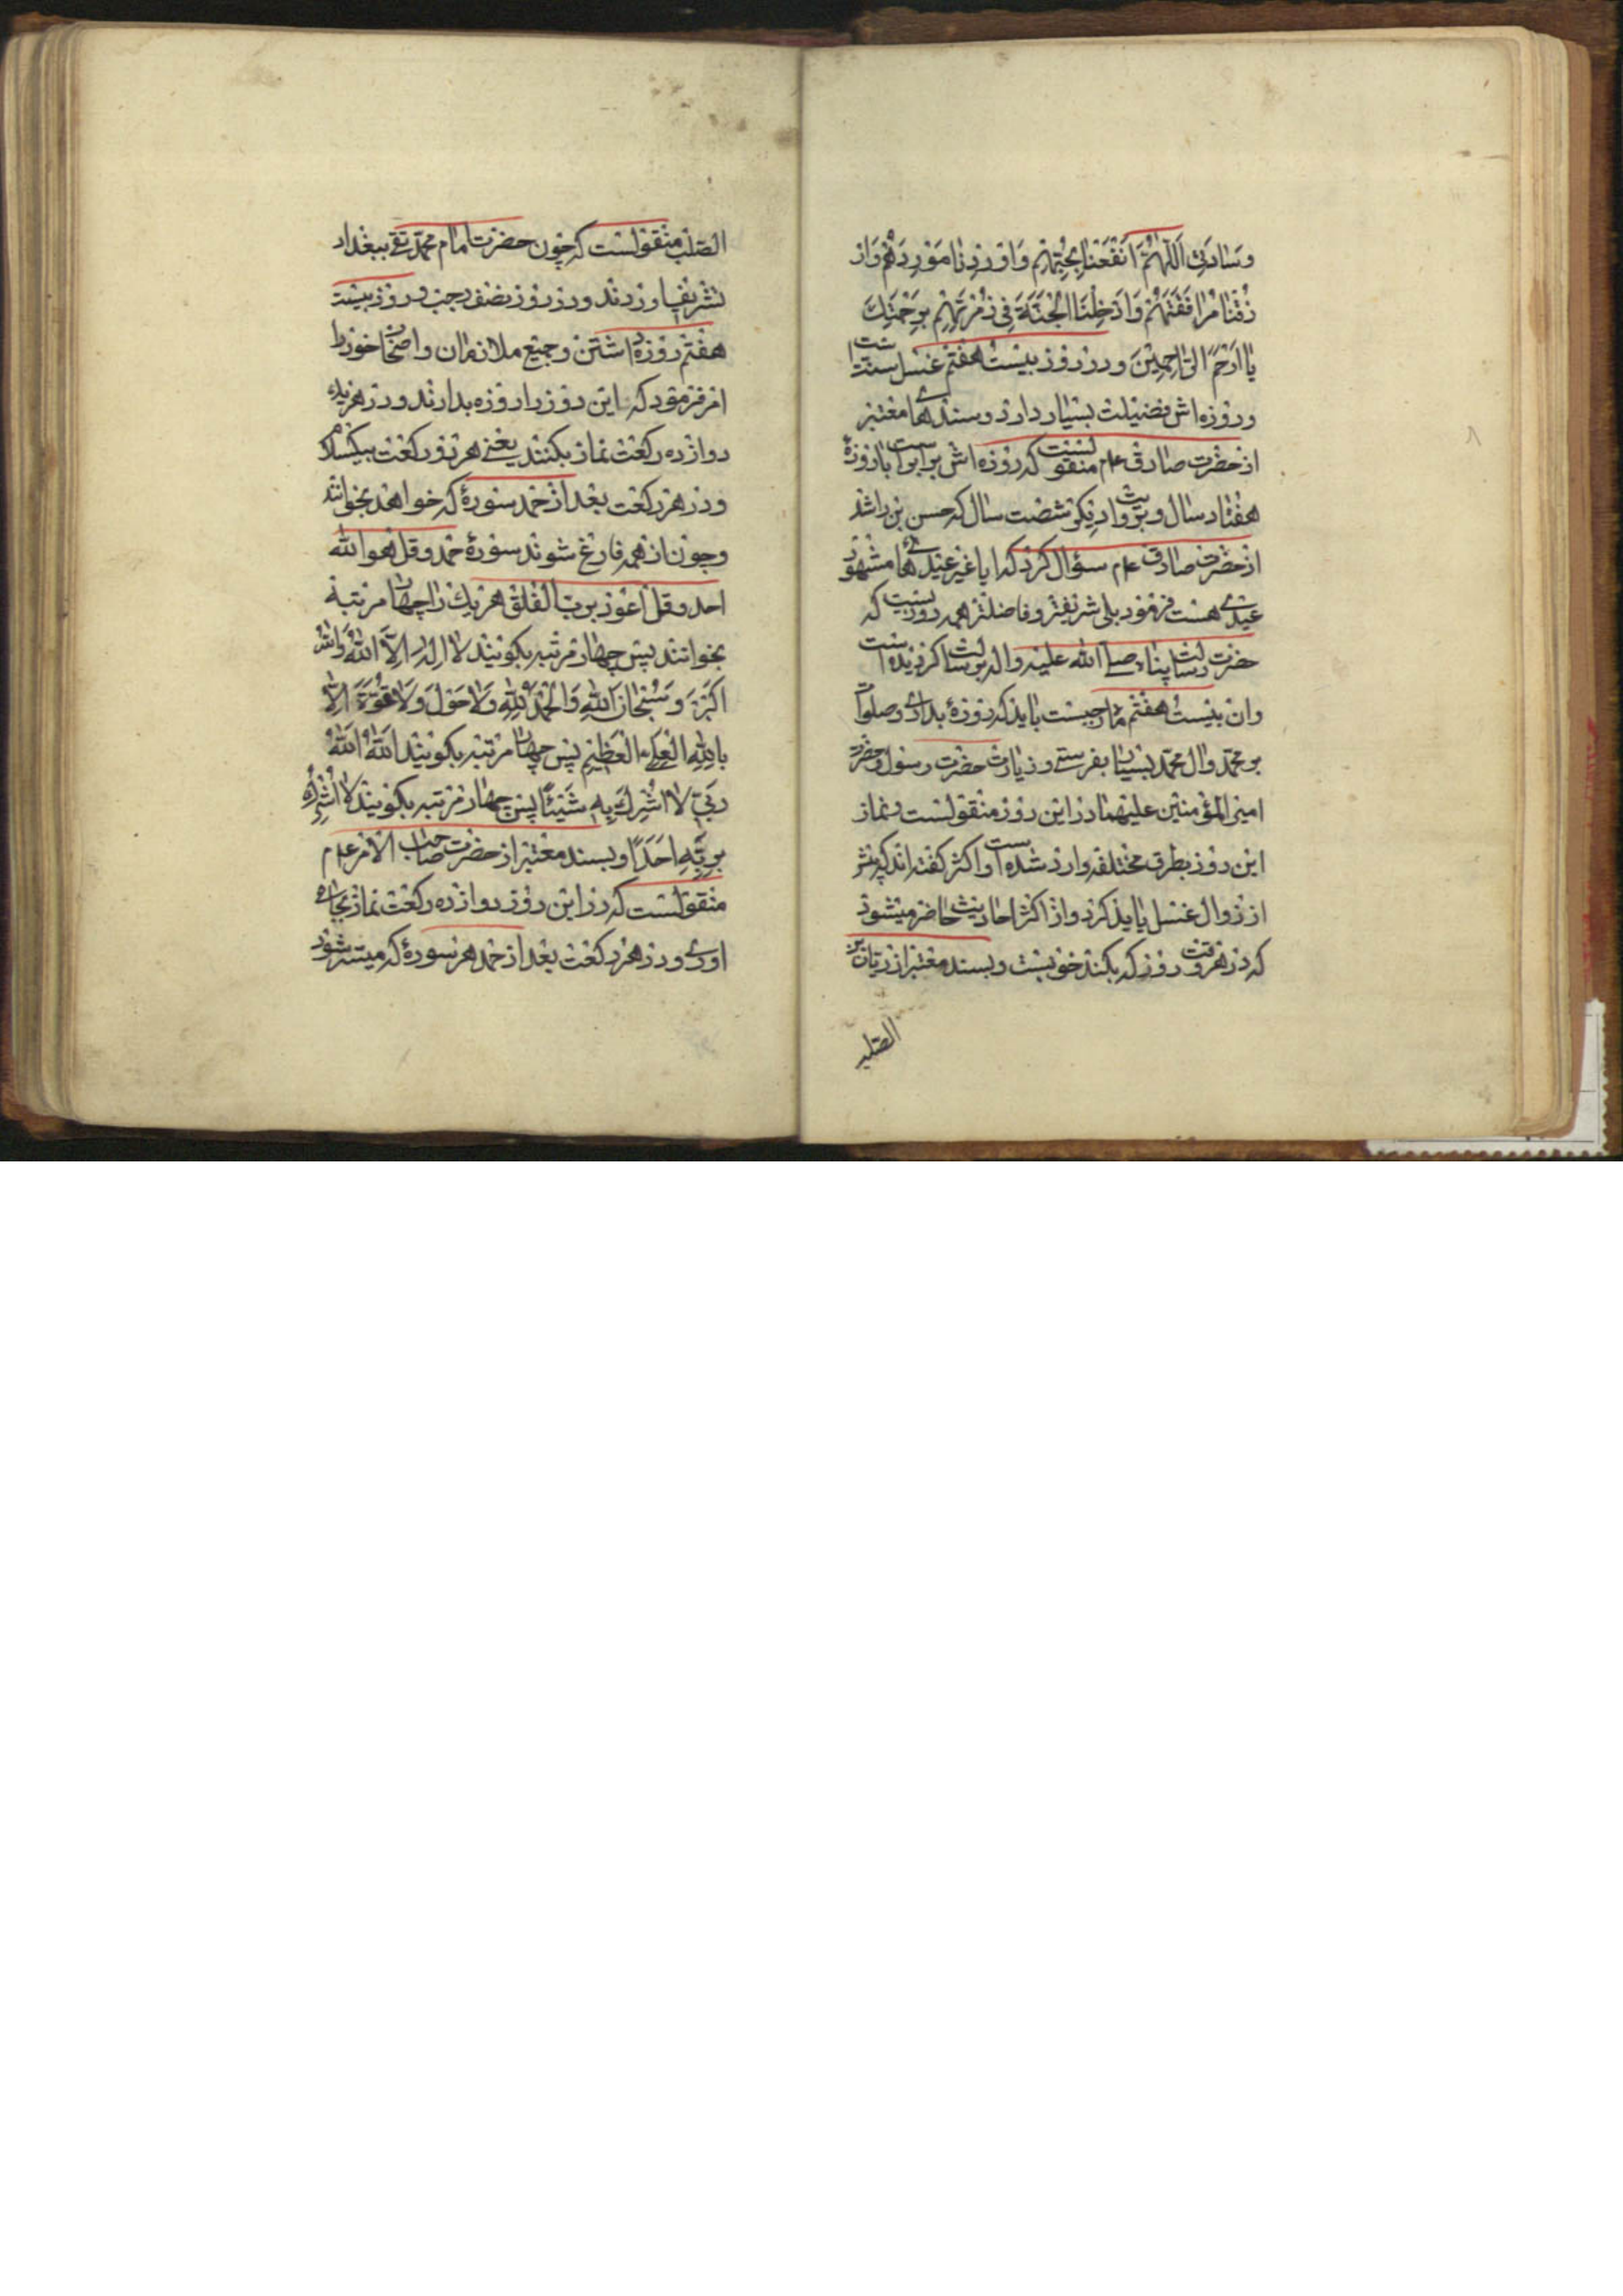 وسادتی اللهم انفعنا بحبهم واوردنا موردهم وار
زقنا مرافقتهم وادخلنا الجنة فی زمرتهم برحمتك
یا ارحم الراحمین و در روز بیست هفتم غسل سنت است
و روزه اش فضیلت بسیار دارد و سندهای معتبر
از حضرت صادق عم منقولست که روزه اش برابر است با روزهٔ
هفتاد سال و بروایت دیگر شصت سال که حسن بن راشد
از حضرت صادق عم سؤال کرد که ایا غیر عیدهای مشهور
عیدی هست فرمود بلی شریفتر و فاضلتر همه روزیست که
حضرت رسالت پناه صلی الله علیه واله برسالت کردیده است
وان بیست هفتم ماه رجبست باید که روزهٔ بداری و صلوات
بر محمد وال محمد بسیار بفرستی و زیارت حضرت رسول و حضرت
امیر المؤمنین علیهما در این روز منقولست و نماز
این روز بطرق مختلفه وارد شده است و اکثر کفته اند که پیشتر
از زوال غسل باید کرد و از اکثر احادیث حاضر میشود
که در هر وقت روز که بکند خوبست و بسند معتبر از ریان بن
الصلت
الصلت منقولست که چون حضرت امام محمد تقی ببغداد
تشریف اوردند و در روز نصف رجب و روز بیست
هفتم روزه داشتن و جمیع ملازمان و اصحاب خود را
امر فرمود که این روز را روزه بدارند و در هر یك
دوازده رکعت نماز بکنند یعنی هر دو رکعت بیکسلام
و در هر رکعت بعد از حمد سورهٔ که خواهند بخوانند
و چون از همه فارغ شوند سورهٔ حمد و قل هو الله
احد و قل اعوذ برب الفلق هر یك را چهار مرتبه
بخوانند پس چهار مرتبه بکویند لا اله الا الله والله
اکبر و سبحان الله والحمد لله ولا حول ولا قوة الا
بالله العلی العظیم پس چهار مرتبه بکویند الله الله
ربی لا اشرك به شیئا پس چهار مرتبه بکویند لا اشرك
بربه احدا و بسند معتبر از حضرت صاحب الامر عم
منقولست که در این روز دوازده رکعت نماز بجای
اوری و در هر رکعت بعد از حمد هر سورهٔ که میسر شود